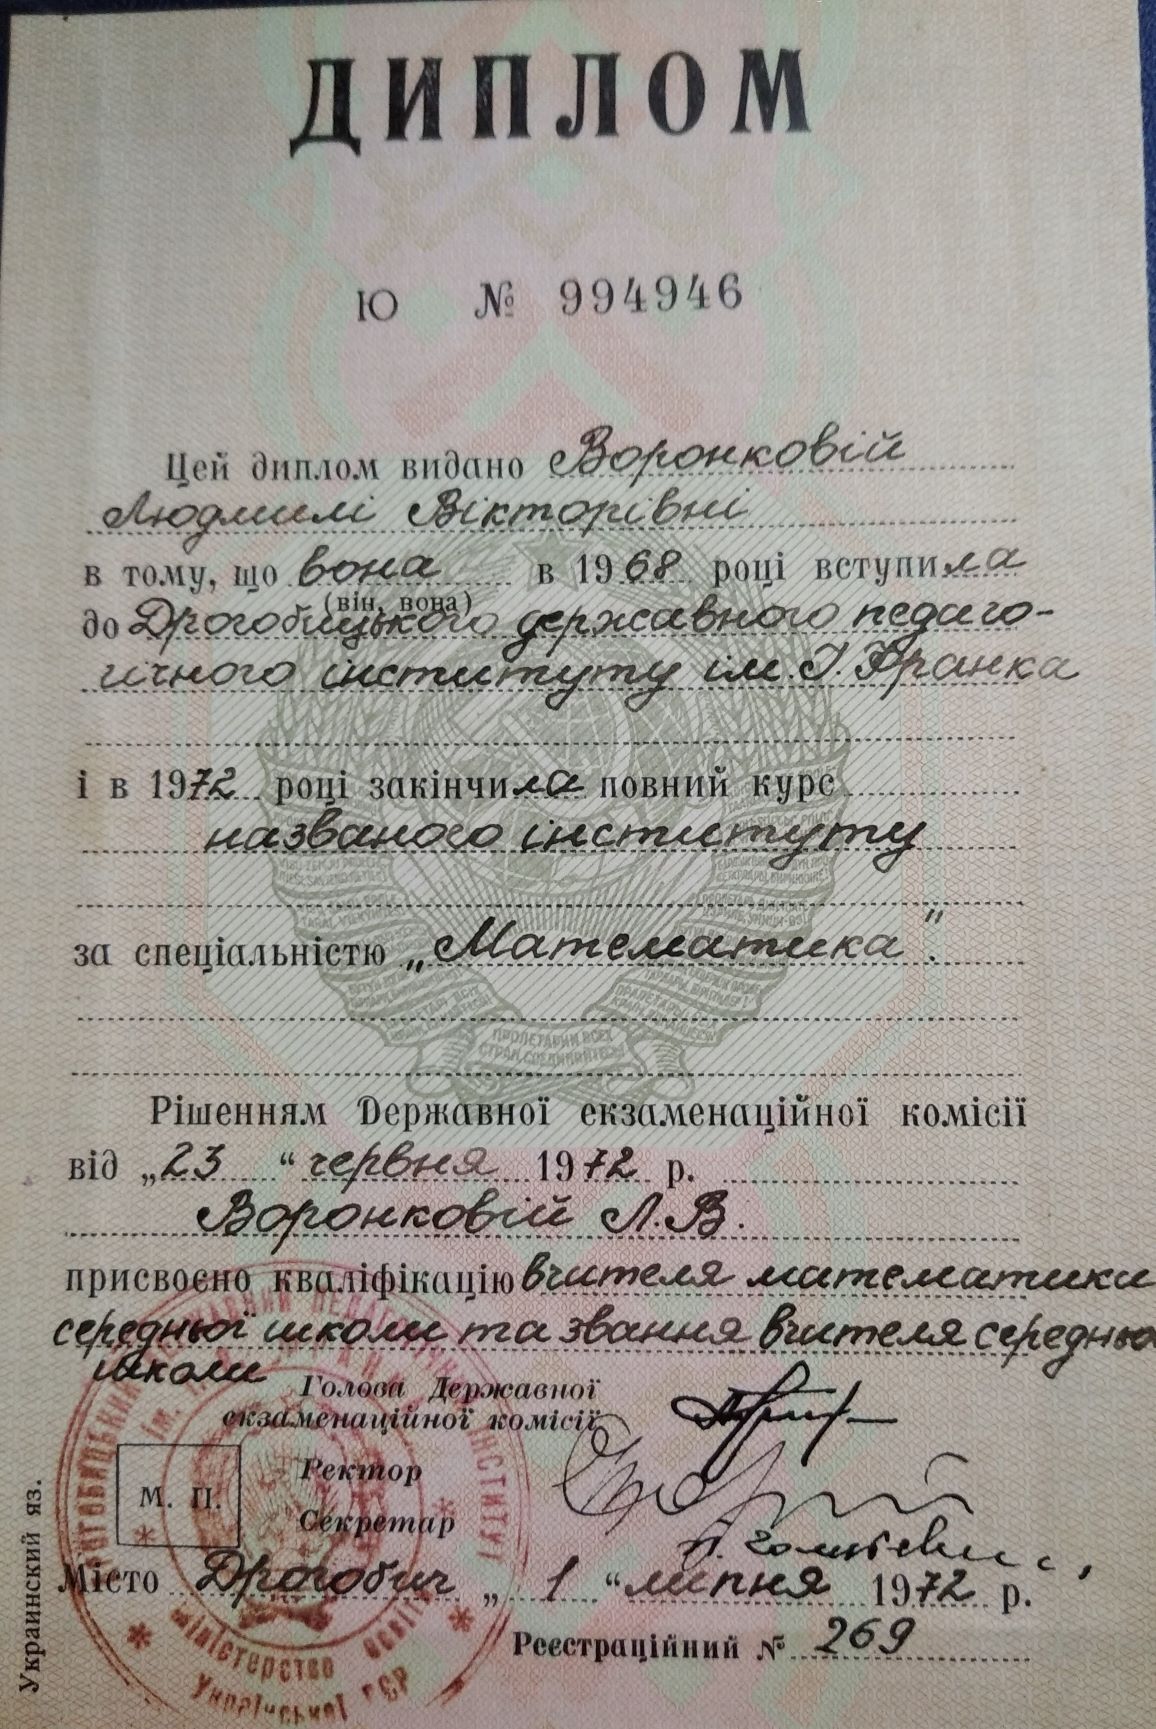 ДИПЛОМ
Ю № 994946
Цей диплом видано Воронковій
Людмилі Вікторівні
в тому, що вона в 1968 році вступила
(він, вона)
до Дрогобицького державного педаго-
гічного інституту ім. І. Франка
і в 1972 році закінчила повний курс
названого інституту
за спеціальністю „Математика".
Рішенням Державної екзаменаційної комісії
від „23“ червня 1972 р.
Воронковій Л.В.
присвоєно кваліфікацію вчителя математики
середньої школи та звання вчителя середньо
школи
Голова Державної
екзаменаційної комісії
Ректор
М. П.
Секретар
Місто Дрогобич „1“ липня 1972 р.
Реєстраційний № 269
Украинский яз.
ПРОЛЕТАРИИ ВСЕХ
СТРАН, СОЕДИНЯЙТЕСЬ!
Міністерство освіти
Української РСР